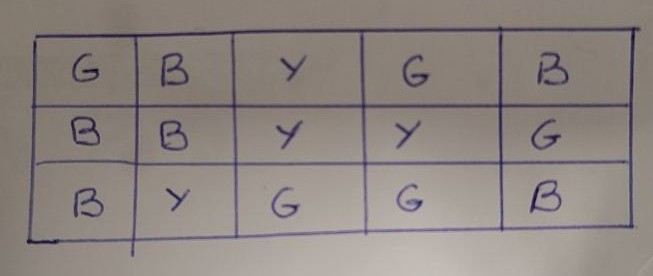 G B Y G B
B B Y Y G
B Y G G B